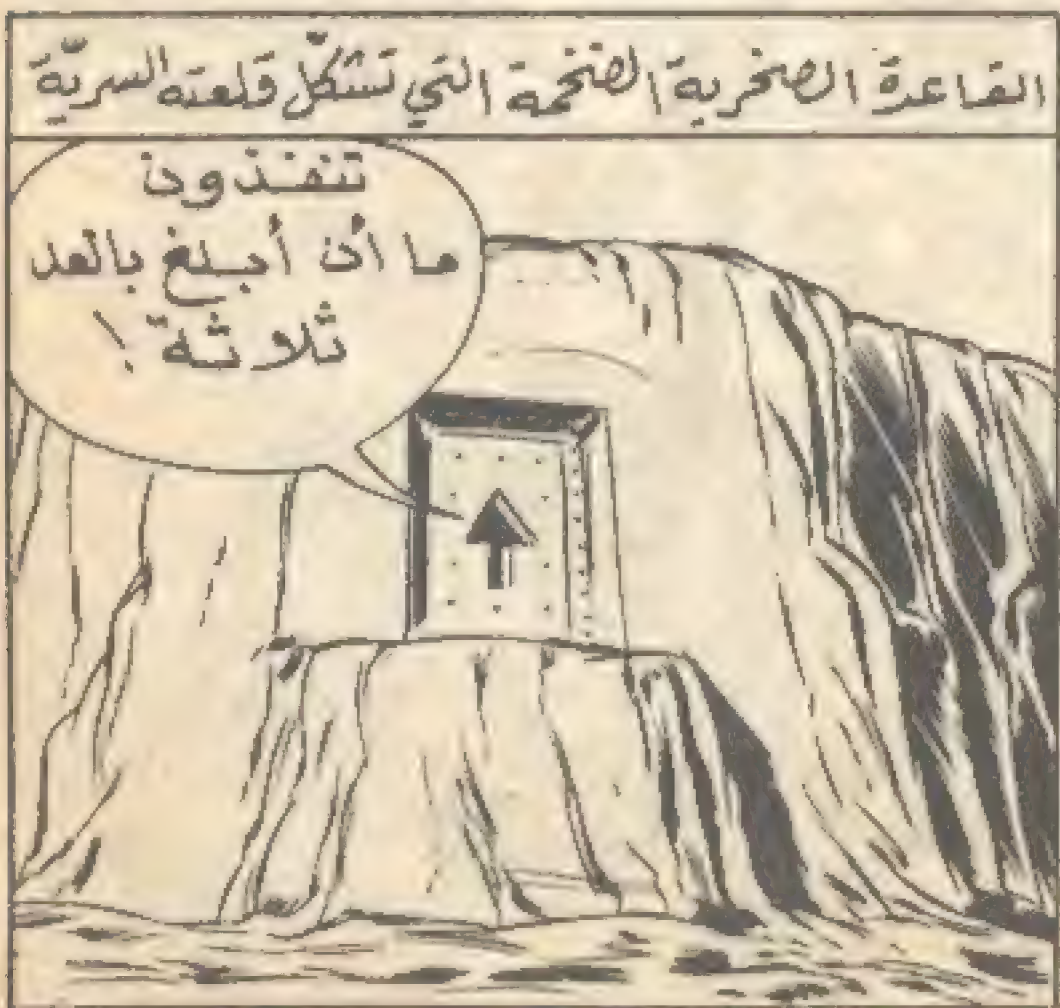 القاعدة الصخرية الضخمة التي تشكّل قلعته السريّة
تنفذون
ما أن أبلغ بالعد
ثلاثة !